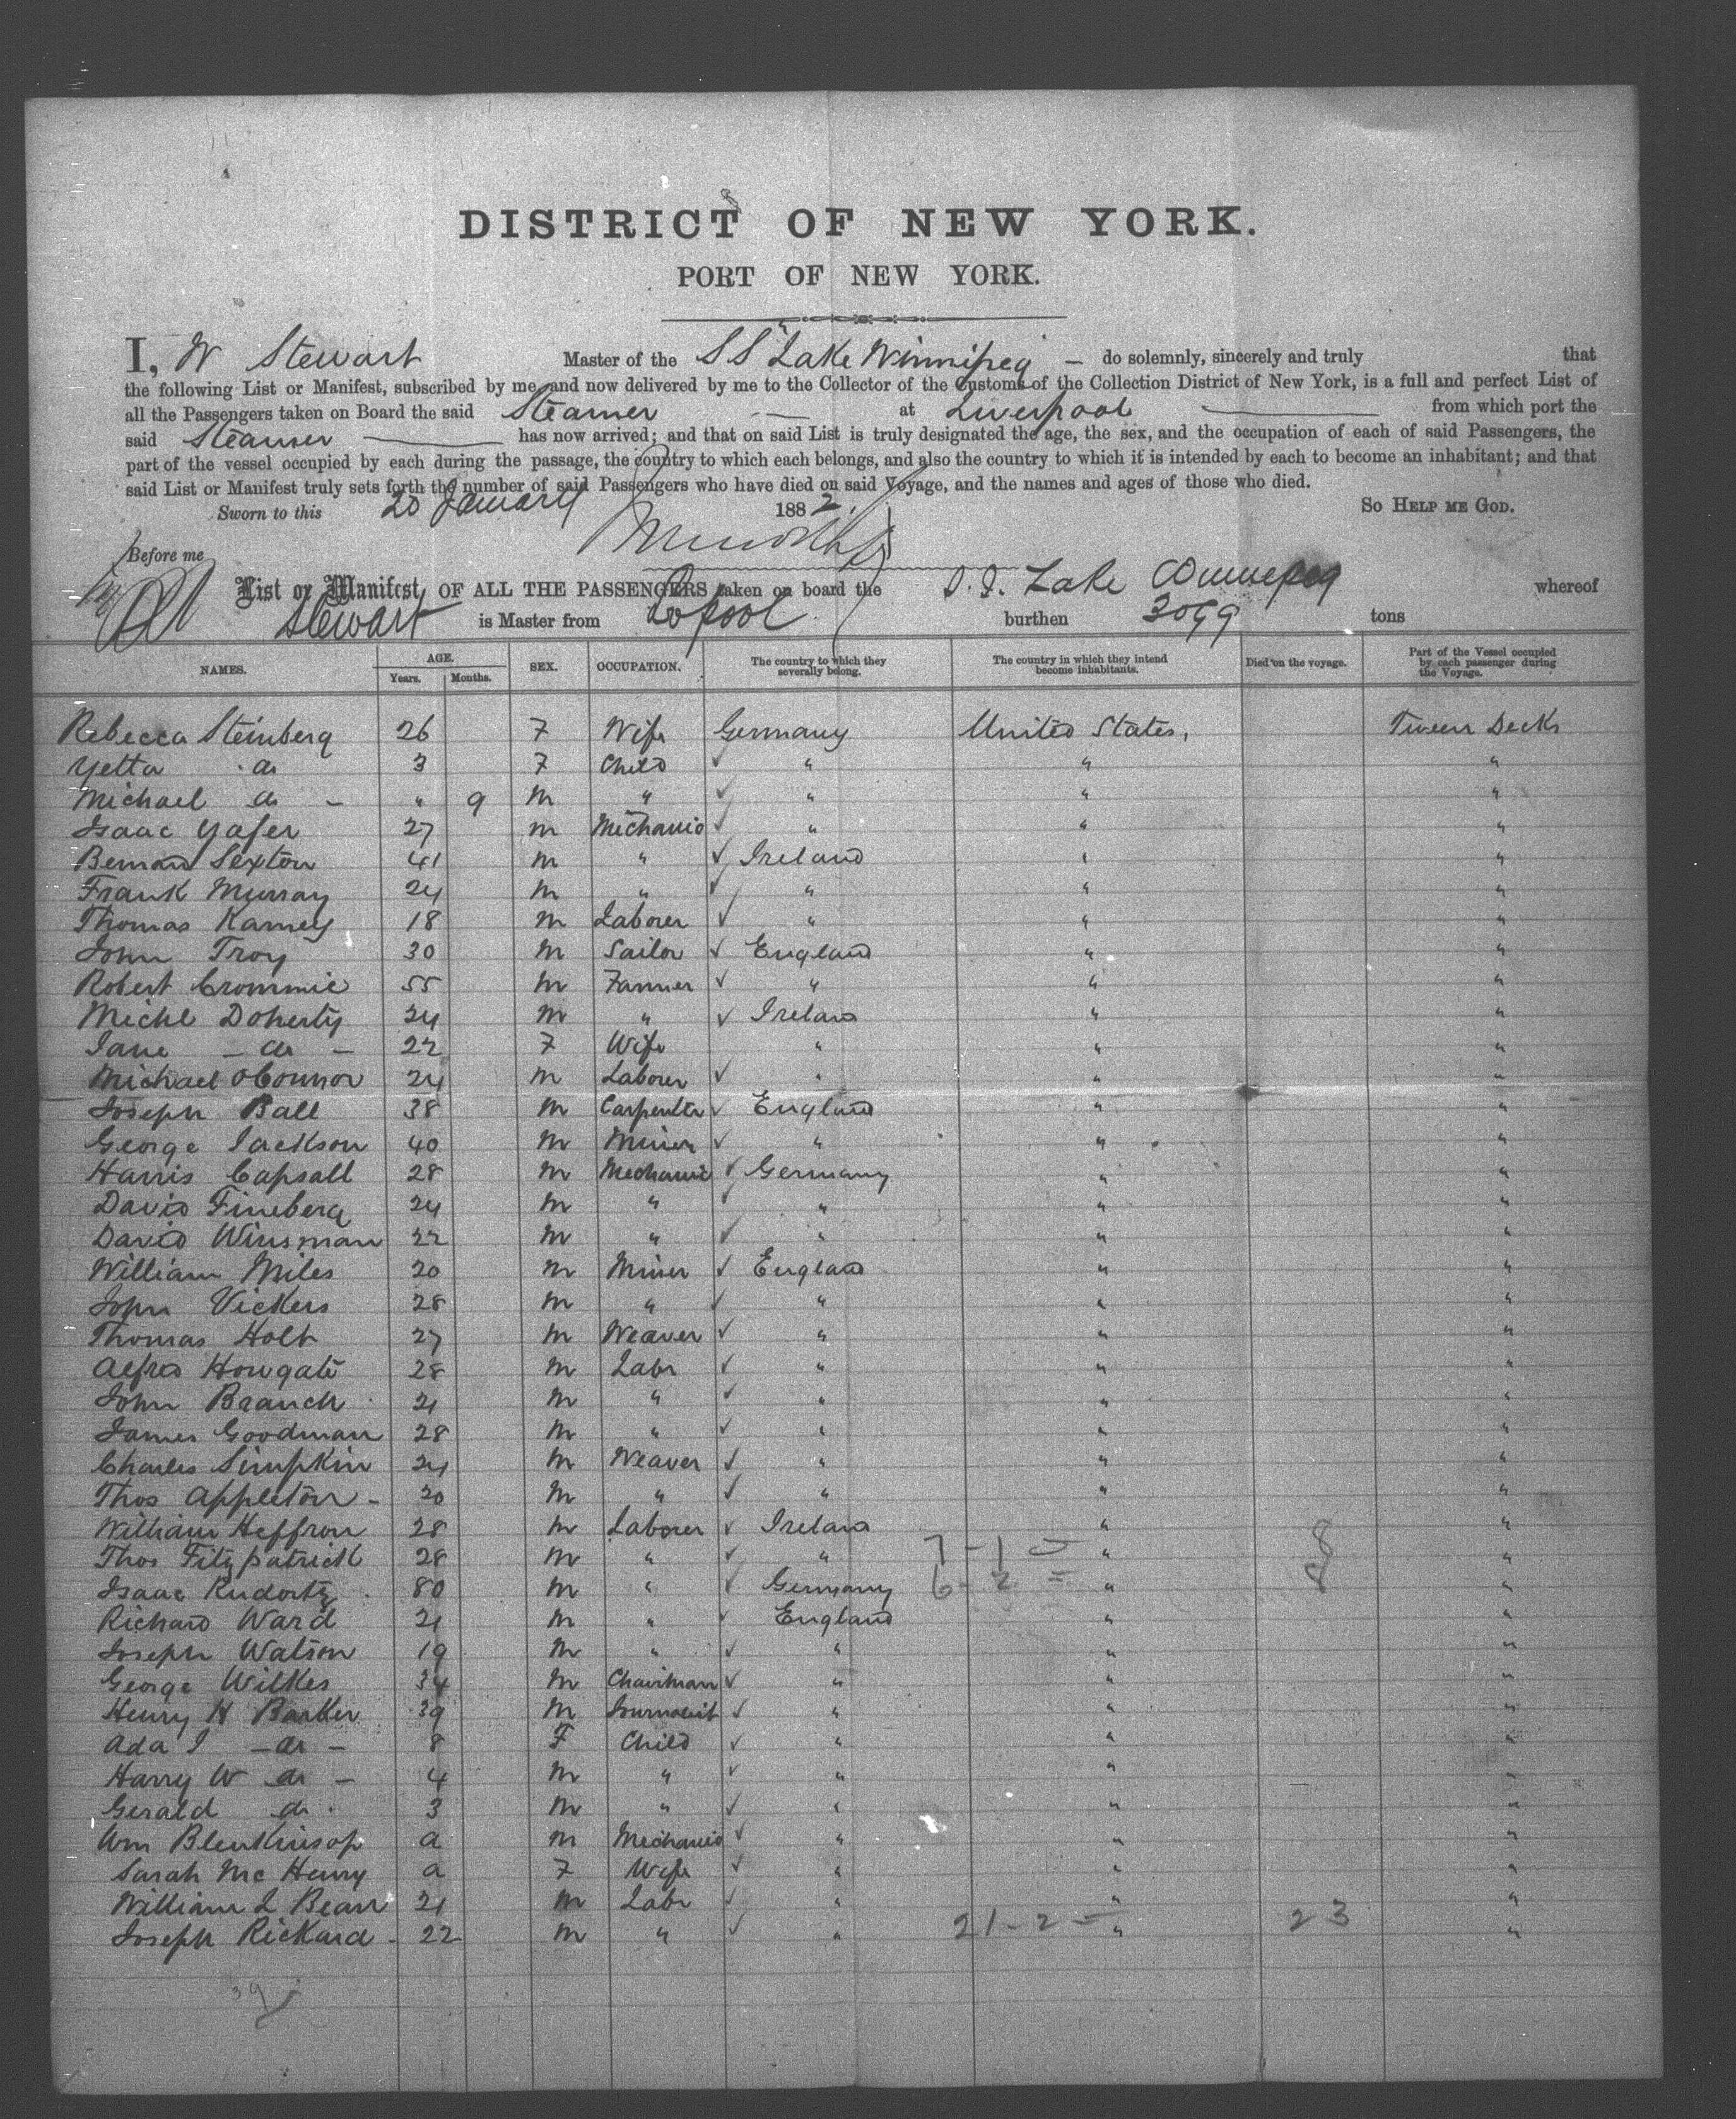 DISTRICT OF NEW YORK.
PORT OF NEW YORK.
I, W Stewart Master of the SS "Lake Winnipeg — do solemnly, sincerely and truly that
the following List or Manifest, subscribed by me, and now delivered by me to the Collector of the Customs of the Collection District of New York, is a full and perfect List of
all the Passengers taken on Board the said Steamer — at Liverpool — from which port the
said Steamer — has now arrived; and that on said List is truly designated the age, the sex, and the occupation of each of said Passengers, the
part of the vessel occupied by each during the passage, the country to which each belongs, and also the country to which it is intended by each to become an inhabitant; and that
said List or Manifest truly sets forth the number of said Passengers who have died on said Voyage, and the names and ages of those who died.
Sworn to this 20 January 1882. So HELP ME GOD.
Before me
List or Manifest OF ALL THE PASSENGERS taken on board the S.S. Lake Winnepeg whereof
Stewart is Master from Lpool burthen 3099 tons
NAMES. AGE. Years. Months. SEX. OCCUPATION. The country to which they severally belong. The country in which they intend become inhabitants. Died on the voyage. Part of the Vessel occupied by each passenger during the Voyage.
Rebecca Steinberg 26 F Wife Germany United States, Tween Decks
Yetta do 3 F Child " " "
Michael do - " 9 M " " " "
Isaac Yafer 27 M Mechanic " " "
Bernard Sexton 41 M " Ireland " "
Frank Murray 24 M " " " "
Thomas Karney 18 M Laborer " " "
John Troy 30 M Sailor England " "
Robert Crommie 55 M Farmer " " "
Michl Doherty 24 M " Ireland " "
Jane - do - 22 F Wife " " "
Michael OConnor 24 M Laborer " " "
Joseph Ball 38 M Carpenter England " "
George Jackson 40 M Miner " " "
Harris Capsall 28 M Mechanic Germany " "
David Fineberg 24 M " " " "
David Winsman 22 M " " " "
William Miles 20 M Miner England " "
John Vickers 28 M " " " "
Thomas Holt 27 M Weaver " " "
Alfred Howgate 28 M Labr " " "
John Branch 21 M " " " "
James Goodman 28 M " " " "
Charles Simpkin 24 M Weaver " " "
Thos Appleton - 20 M " " " "
William Heffron 28 M Laborer Ireland " "
Thos Fitzpatrick 28 M " " 7-1 = " "
Isaac Rudortz 80 M " Germany 6-2 = " "
Richard Ward 21 M " England " "
Joseph Watson 19 M " " " "
George Wilkes 34 M Chairman " " "
Henry H Barker 39 M Journalist " " "
Ada J - do - 8 F Child " " "
Harry W do - 4 M " " " "
Gerald do. 3 M " " " "
Wm Blenkinsop a M Mechanic " " "
Sarah Mc Henry a F Wife " " "
William L Bear 21 M Labr " " "
Joseph Rickard - 22 M " " 21-2 = " 23 "
39